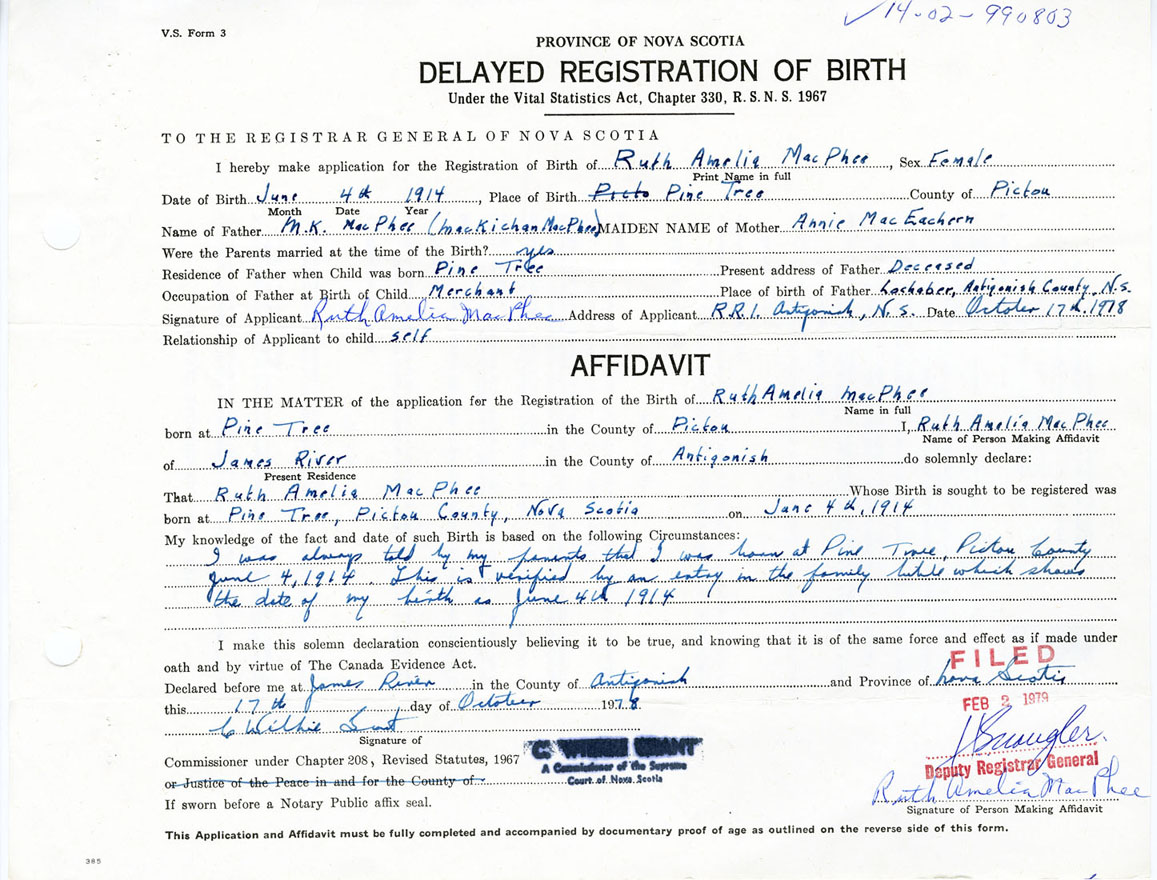 V.S. Form 3
✓ 14-02-990803
PROVINCE OF NOVA SCOTIA
DELAYED REGISTRATION OF BIRTH
Under the Vital Statistics Act, Chapter 330, R. S. N. S. 1967
TO THE REGISTRAR GENERAL OF NOVA SCOTIA
I hereby make application for the Registration of Birth of Ruth Amelia MacPhee, Sex Female
Print Name in full
Date of Birth June 4th 1914, Place of Birth Picto Pine Tree County of Pictou
Month Date Year
Name of Father M.K. MacPhee (MacKichan MacPhee) MAIDEN NAME of Mother Annie MacEachern
Were the Parents married at the time of the Birth? yes
Residence of Father when Child was born Pine Tree Present address of Father Deceased
Occupation of Father at Birth of Child Merchant Place of birth of Father Lochaber, Antigonish County, N.S.
Signature of Applicant Ruth Amelia MacPhee Address of Applicant R.R.1. Antigonish, N.S. Date October 17th, 1978
Relationship of Applicant to child self
AFFIDAVIT
IN THE MATTER of the application for the Registration of the Birth of Ruth Amelia MacPhee
Name in full
born at Pine Tree in the County of Pictou I, Ruth Amelia MacPhee
Name of Person Making Affidavit
of James River in the County of Antigonish do solemnly declare:
Present Residence
That Ruth Amelia MacPhee Whose Birth is sought to be registered was
born at Pine Tree, Pictou County, Nova Scotia on June 4th, 1914
My knowledge of the fact and date of such Birth is based on the following Circumstances:
I was always told by my parents that I was born at Pine Tree, Pictou County
June 4, 1914. This is verified by an entry in the family bible which shows
the date of my birth as June 4th 1914
I make this solemn declaration conscientiously believing it to be true, and knowing that it is of the same force and effect as if made under
oath and by virtue of The Canada Evidence Act.
FILED
Declared before me at James River in the County of Antigonish and Province of Nova Scotia
this 17th day of October 1978
FEB 2 1979
C Wilkie Grant
Signature of
Commissioner under Chapter 208, Revised Statutes, 1967
C. WILKIE GRANT
A Commissioner of the Supreme
Court of Nova Scotia
Deputy Registrar General
or Justice of the Peace in and for the County of
Ruth Amelia MacPhee
If sworn before a Notary Public affix seal.
Signature of Person Making Affidavit
This Application and Affidavit must be fully completed and accompanied by documentary proof of age as outlined on the reverse side of this form.
385